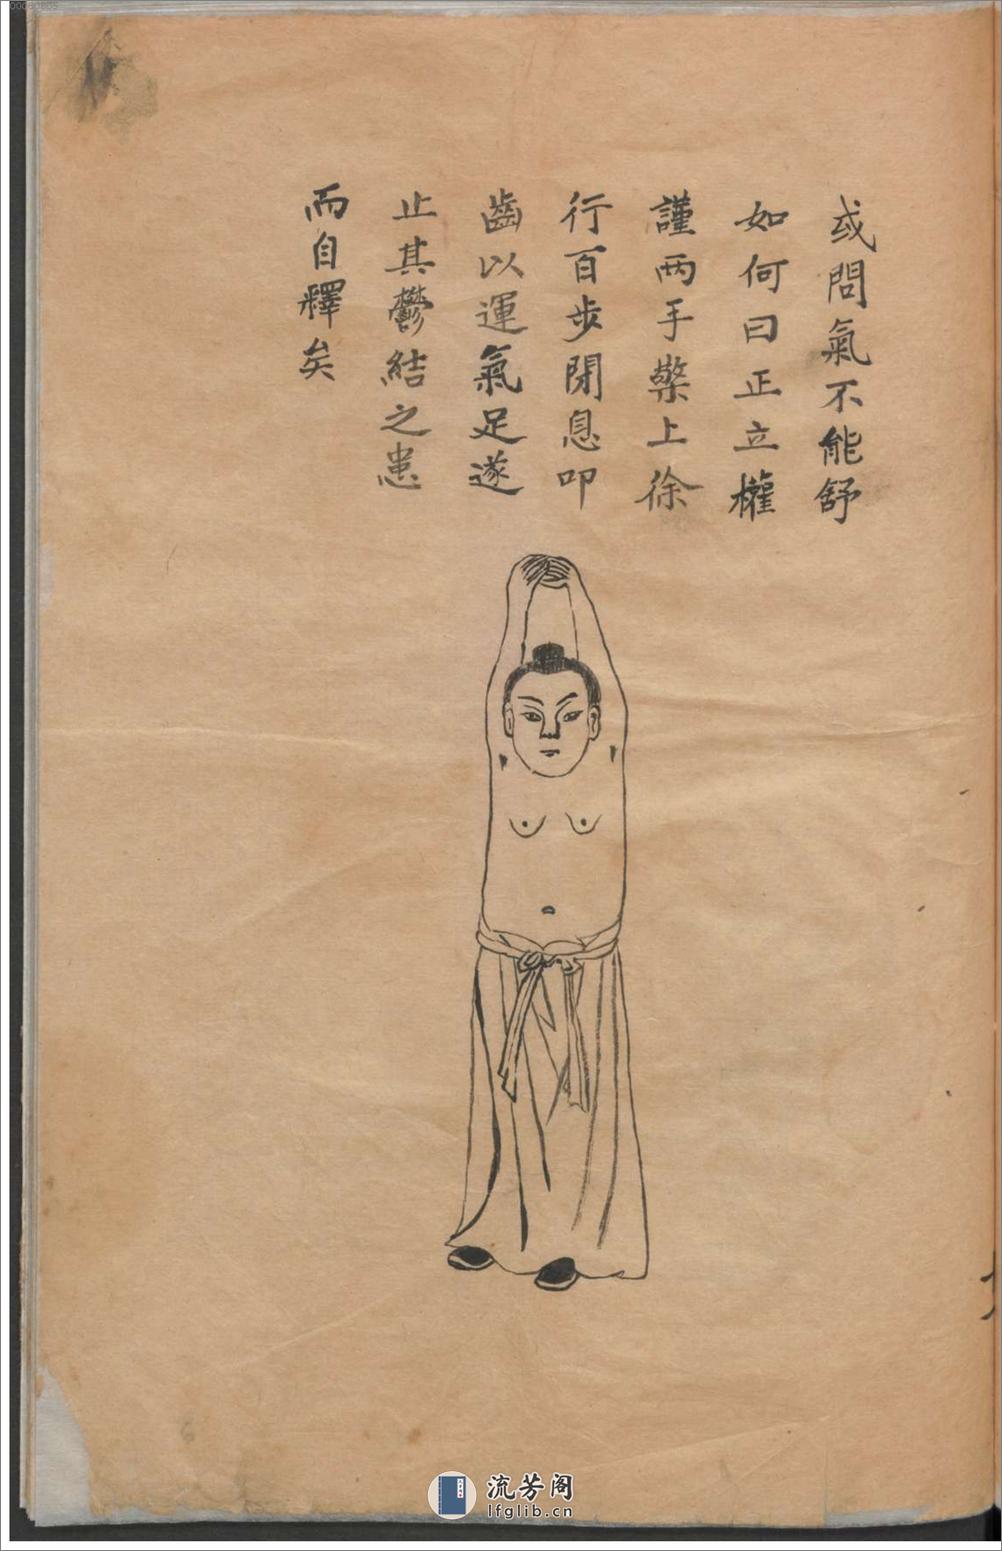 或問氣不能舒
如何曰正立權
謹兩手擎上徐
行百步閉息叩
齒以運氣足遂
止其鬱結之患
而自釋矣
流芳阁
lfglib.cn